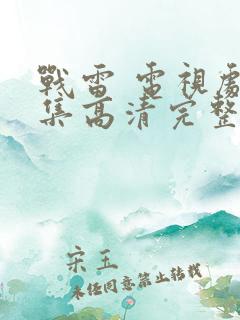 戰雷 電視劇
集高清完整
宋玉
未经同意禁止转载